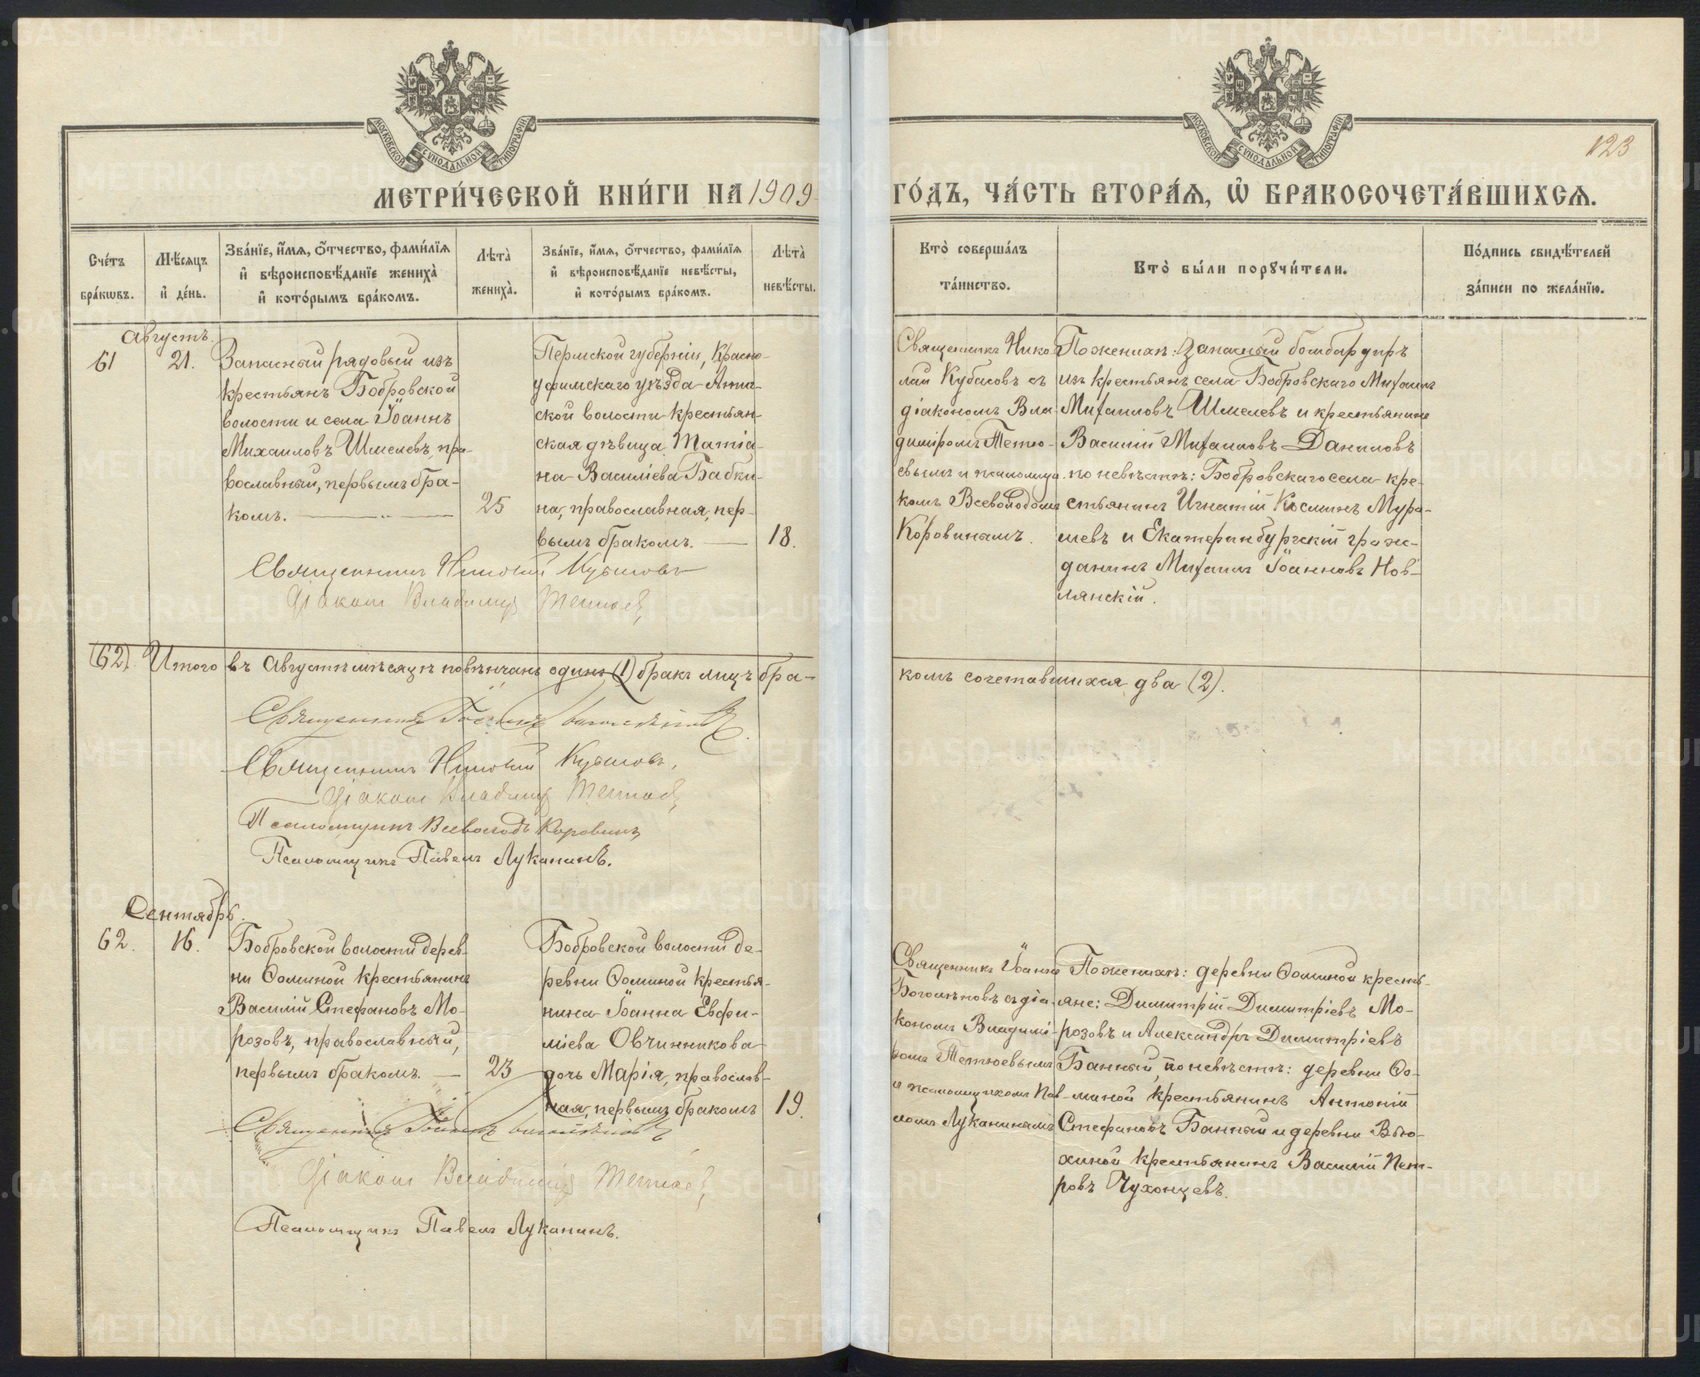 МЕТРИ́ЧЕСКОЙ КНИ́ГИ НА 1909
ГО́ДЪ, ЧА́СТЬ ВТОРА́Я, Ѽ БРАКОСОЧЕТА́ВШИХСЯ.
123
Сче́тъ бра́кωвъ.
Мѣ́сяцъ и҆ де́нь.
Зва́нїе, и҆́мя, ѻ҆́тчество, фами́лїя и҆ вѣроисповѣ́данїе жениха̀ и҆ кото́рымъ бра́комъ.
Лѣ́та̀ жениха̀.
Зва́нїе, и҆́мя, ѻ҆́тчество, фами́лїя и҆ вѣроисповѣ́данїе невѣ́сты, и҆ кото́рымъ бра́комъ.
Лѣ́та̀ невѣ́сты.
Кто̀ соверша́лъ та́инство.
Кто̀ бы́ли порꙋчи́тели.
По́дпись свидѣ́телей за́писи по жела́нїю.
Августъ.
61
21.
Запасный рядовый изъ
крестьянъ Бобровской
волости и села Іоаннъ
Михаиловъ Шмелевъ, пра-
вославный, первымъ бра-
комъ.
25
Пермской губерніи, Красно-
уфимскаго уѣзда Ачит-
ской волости крестьян-
ская дѣвица Татіа-
на Василіева Бабки-
на, православная, пер-
вымъ бракомъ.
18.
Священникъ Нико-
лай Кубасовъ съ
діакономъ Вла-
диміромъ Тетю-
евымъ и псаломщи-
комъ Всеволодомъ
Коровинымъ.
По женихѣ: Запасный бомбардиръ
изъ крестьянъ села Бобровскаго Михаилъ
Михаиловъ Шмелевъ и крестьянинъ
Василій Михаиловъ Даниловъ
по невѣстѣ: Бобровскаго села кре-
стьянинъ Игнатій Косминъ Мура-
шевъ и Екатеринбургскій граж-
данинъ Михаилъ Іоанновъ Нов-
лянскій.
Священникъ Николай Кубасовъ
Діаконъ Владимір Тетюевъ
(62). Итого въ Августѣ мѣсяцѣ повѣнчанъ одинъ (1) бракъ лицъ бра-
комъ сочетавшихся два (2).
Священникъ Іоаннъ Богомѣповъ
Священникъ Николай Кубасовъ.
Діаконъ Владимір Тетюевъ
Псаломщикъ Всеволодъ Коровинъ
Псаломщикъ Павелъ Луканинъ.
Сентябрь.
62.
16.
Бобровской волости дерев-
ни Ѳоминой крестьянинъ
Василій Стефановъ Мо-
розовъ, православный,
первымъ бракомъ.
23
Бобровской волости де-
ревни Ѳоминой крестья-
нина Іоанна Евфи-
міева Овчинникова
дочь Марія, православ-
ная, первымъ бракомъ
19.
Священникъ Іоаннъ
Богомѣповъ съ діа-
кономъ Владимі-
ромъ Тетюевымъ
и псаломщикомъ Пав-
ломъ Луканинымъ
По женихѣ: деревни Ѳоминой кресть-
яне: Димитрій Димитріевъ Мо-
розовъ и Александръ Димитріевъ
Банный, по невѣстѣ: деревни Ѳо-
миной крестьянинъ Антоній
Стефановъ Банный и деревни Вью-
хиной крестьянинъ Василій Пет-
ровъ Чухонцевъ.
Священникъ Іоаннъ Богомѣповъ
Діаконъ Владимір Тетюевъ
Псаломщикъ Павелъ Луканинъ.
METRIKI.GASO-URAL.RU